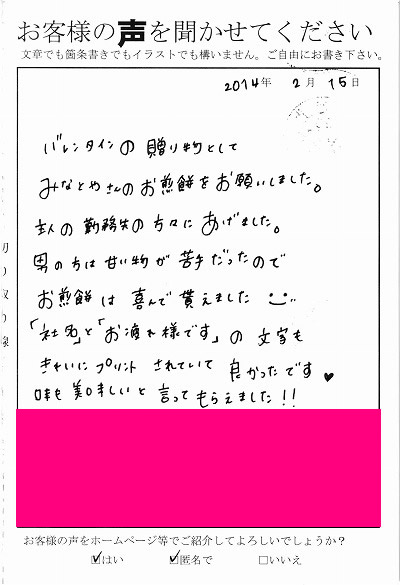 お客様の声を聞かせてください
文章でも箇条書きでもイラストでも構いません。ご自由にお書き下さい。
2014年 2月 15日
バレンタインの贈り物として
みなとやさんのお煎餅をお願いしました。
主人の勤務先の方々にあげました。
男の方は甘い物が苦手だったので
お煎餅は喜んで貰えました
「社名」と「お疲れ様です」の文字も
きれいにプリントされていて良かったです♥
味も美味しいと言ってもらえました!!
切り取り線
お客様の声をホームページ等でご紹介してよろしいでしょうか?
☑はい ☑匿名で □いいえ